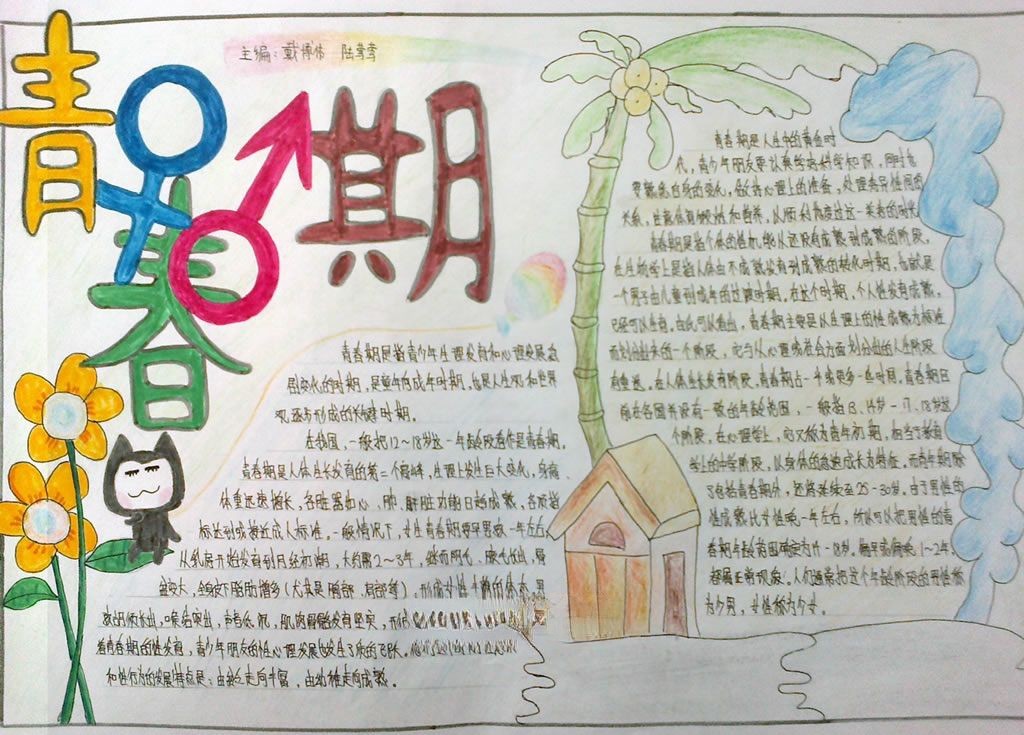 青春期
主编：戴博伟 陆莺莺
青春期是指青少年生理发育和心理发展急
剧变化的时期，是童年向成年时期，也是人生观和世界
观逐步形成的关键时期。
在我国，一般把12～18岁这一年龄段看作是青春期。
青春期是人体生长发育的第二个高峰，生理上发生巨大变化，身高
体重迅速增长，各脏器如心、肺、肝脏功能日趋成熟，各项指
标达到或接近成人标准。一般情况下，女生青春期要早男孩一年左右
从乳房开始发育到月经初潮，大约需2～3年，继而阴毛、腋毛长出，骨
盆变大，全身皮下脂肪增多（尤其是胸部、肩部等），形成女性丰满的体态，男
喉结突出，声音低沉，肌肉骨骼发育坚实，形成
着青春期的性发育，青少年朋友的性心理发展也发生了质的飞跃。
和性行为的发展特点是：由孤立走向丰富，由幼稚走向成熟。
青春期是人生中的黄金时
代，青少年朋友要认真学习科学知识，同时也
要熟悉自身的变化，做好心理上的准备，处理青异性间的
关系，注意体育锻炼和营养，从顺利度过这一美着的时光
青春期是指个体的性机能从还没有成熟到成熟的阶段，
在生物学上是指人体由不成熟发育到成熟的转化时期，也就是
一个男子由儿童到成年的过渡时期，在这个时期，个人性发育成熟，
已经可以生育，由此可以看出，青春期主要是从生理上的性成熟为标准
而划分出来的一个阶段，它与从心理或社会方面划分出的人生阶段
有重迭。在人体生长发育阶段，青春期占一半或更多一些时间。青春期目
前在各国并没有一致的年龄范围，一般指13、14岁—17、18岁这
个阶段，在心理学上，它又称为青年初期，相当于教育
学上的中学阶段，以身体的急速成长为特征。而青年期除
了包括青春期外，还将延续至25-30岁。由于男性的
性成熟比女性晚一年左右，所以可以把男性的青
春期年龄范围确定为11—18岁。偏早或偏晚1～2年，
都属正常现象。人们通常把这个年龄阶段的男性称
为少男，女性称为少女。